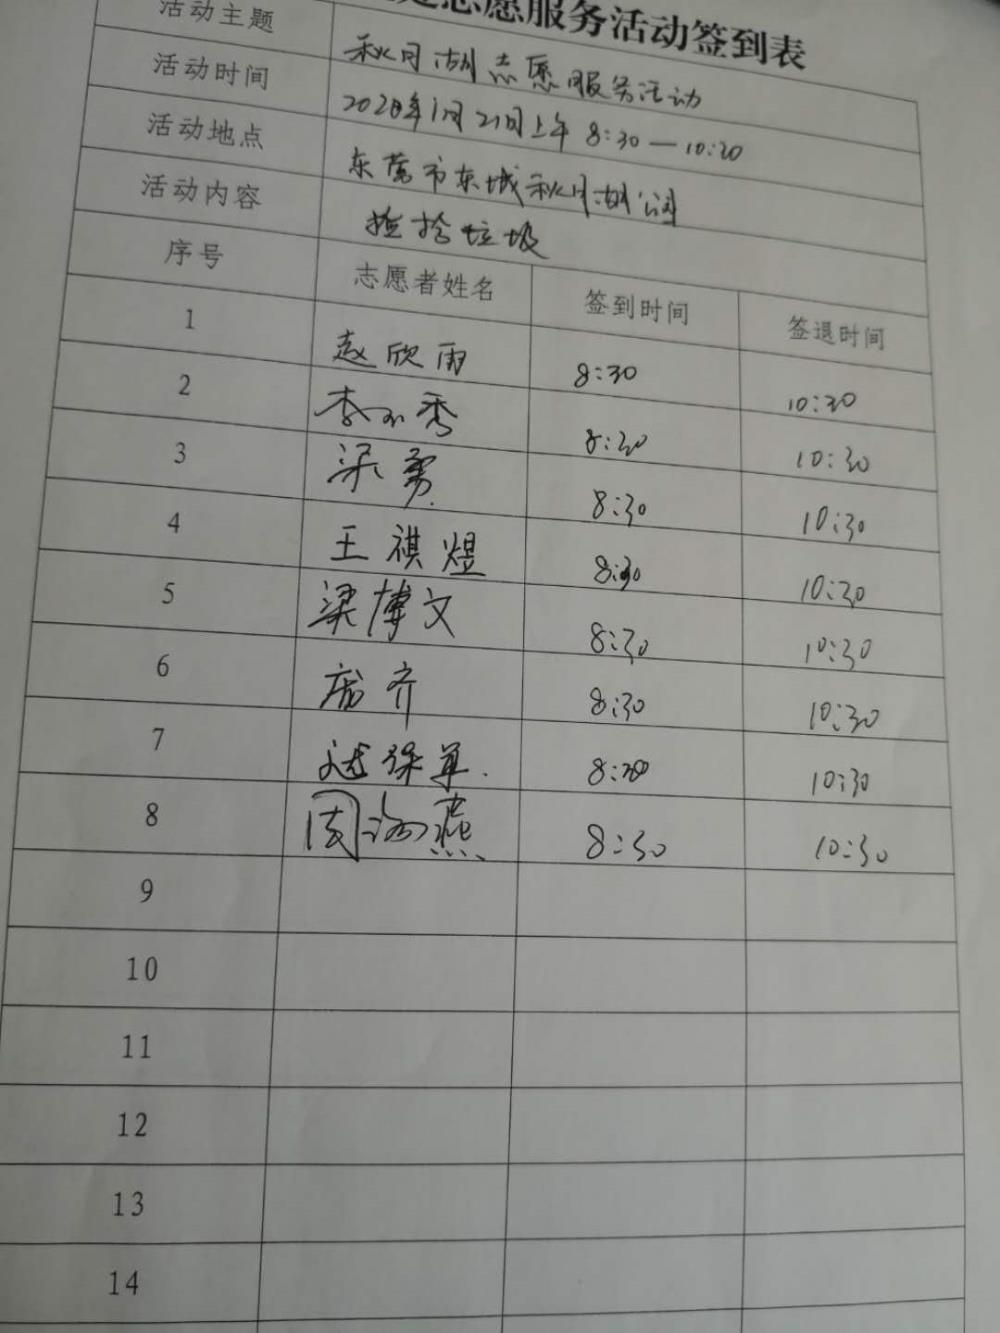 志愿服务活动签到表
活动主题 秋月湖志愿服务活动
活动时间 2020年1月21日上午 8:30—10:30
活动地点 东营市东城秋月湖公园
活动内容 捡拾垃圾
序号 志愿者姓名 签到时间 签退时间
1 赵欣雨 8:30 10:30
2 李小秀 8:30 10:30
3 梁勇 8:30 10:30
4 王祺煜 8:30 10:30
5 梁博文 8:30 10:30
6 齐 8:30 10:30
7 保军 8:30 10:30
8 周海燕 8:30 10:30
9
10
11
12
13
14